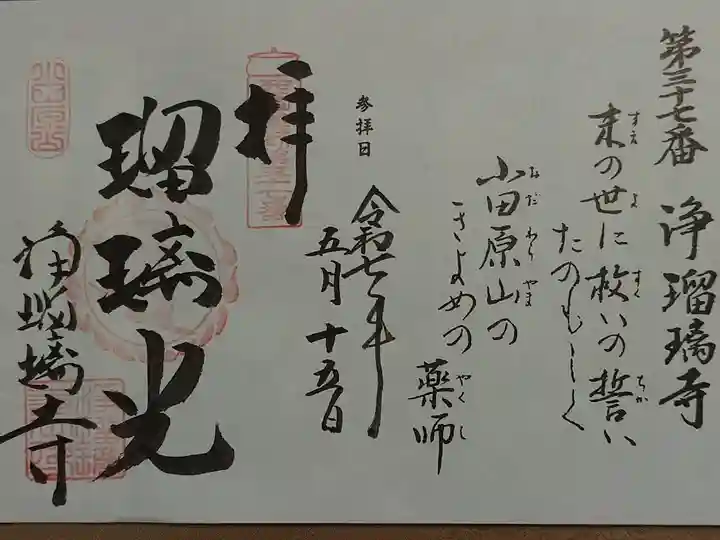 第三十七番 浄瑠璃寺
末の世に救いの誓い
すえ よ すく ちか
たのもしく
小田原山の
おだわらやま
きよめの 薬師
やくし
参拝日
令和七年
五月十五日
拝
瑠璃光
浄瑠璃寺